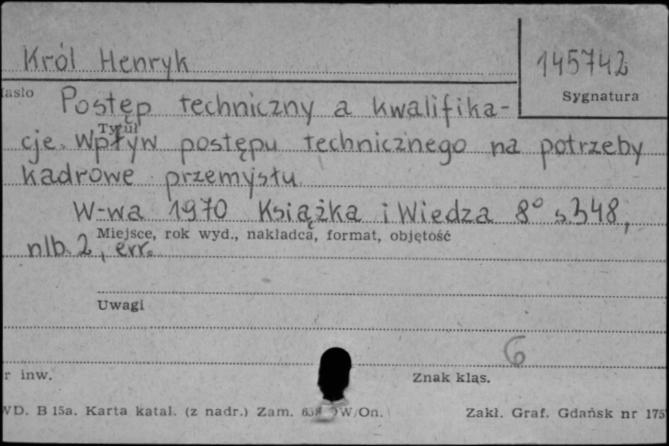 Król Henryk
145742
Sygnatura
Postęp techniczny a kwalifika-
Tytuł
cje. Wpływ postępu technicznego na potrzeby
kadrowe przemysłu
W-wa 1970 Książka i Wiedza 8° s. 348,
Miejsce, rok wyd., nakładca, format, objętość
nlb. 2, err.
Uwagi
6
r inw.
Znak klas.
WD. B 15a. Karta katal. (z nadr.) Zam. W/On.
Zakł. Graf. Gdańsk nr 175